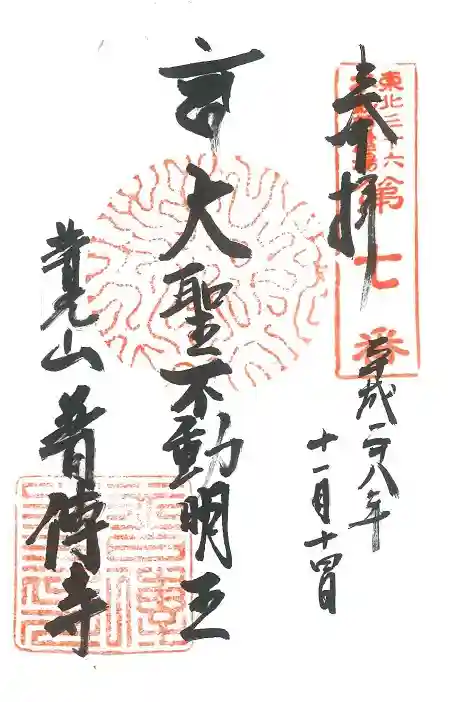 奉拝
東北三十六
第七番
平成二八年
十一月十四日
大聖不動明王
普光山 普傳寺